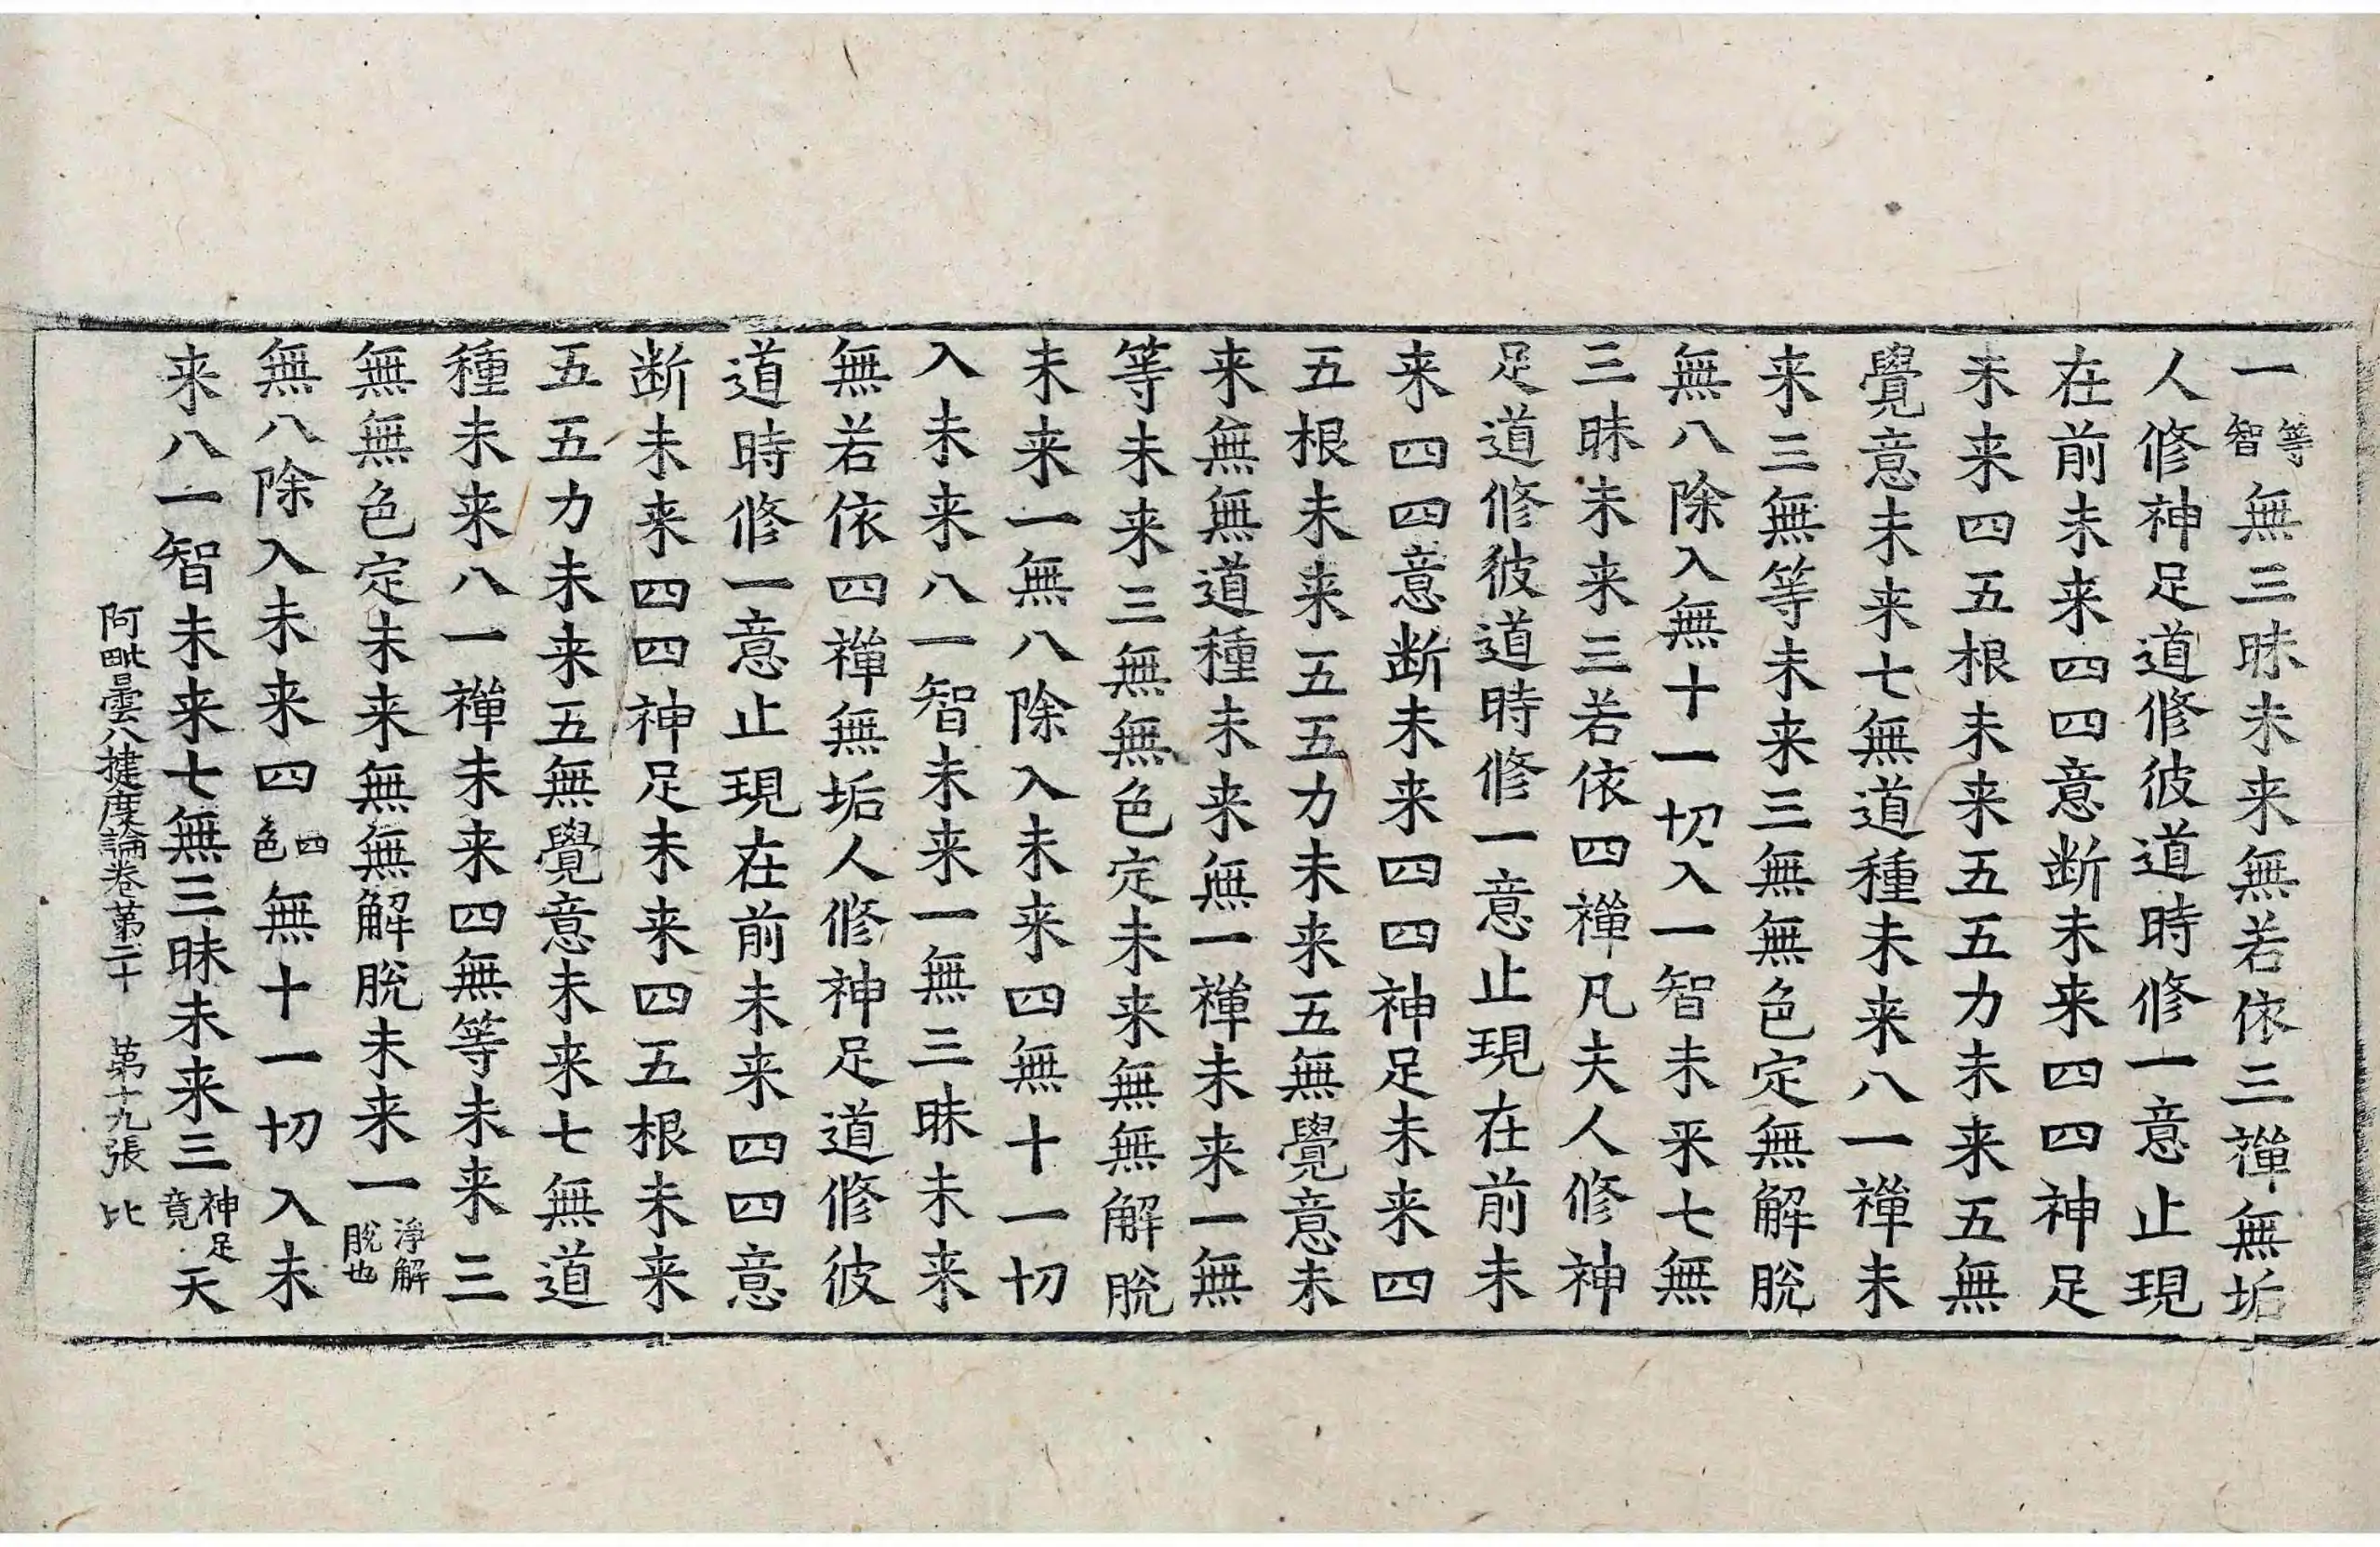 一等智無三昧未来無若依三禪無垢
人修神足道修彼道時修一意止現
在前未来四四意断未来四四神足
未来四五根未来五五力未来五無
覺意未来七無道種未来八一禪未
来三無等未来三無無色定無解脫
無八除入無十一切入一智未来七無
三昧未来三若依四禪凡夫人修神
足道修彼道時修一意止現在前未
来四四意断未来四四神足未来四
五根未来五五力未来五無覺意未
来無無道種未来無一禪未来一無
等未来三無無色定未来無無解脫
未来一無八除入未来四無十一切
入未来八一智未来一無三昧未来
無若依四禪無垢人修神足道修彼
道時修一意止現在前未来四四意
断未来四四神足未来四五根未来
五五力未来五無覺意未来七無道
種未来八一禪未来四無等未来三
無無色定未来無無解脫未来一淨解脫也
無八除入未来四四色無十一切入未
来八一智未来七無三昧未来三神足竟天
阿毗曇八揵度論卷苐二十 苐十九張 比